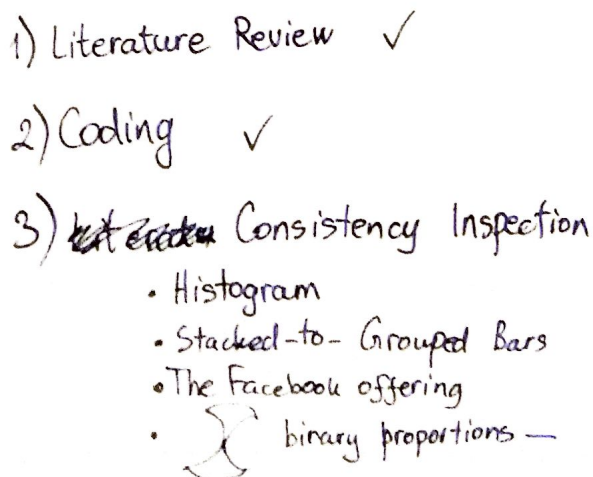 1) Literature Review ✓
2) Coding ✓
3) Consistency Inspection
• Histogram
• Stacked-to-Grouped Bars
• The Facebook offering
• binary proportions —